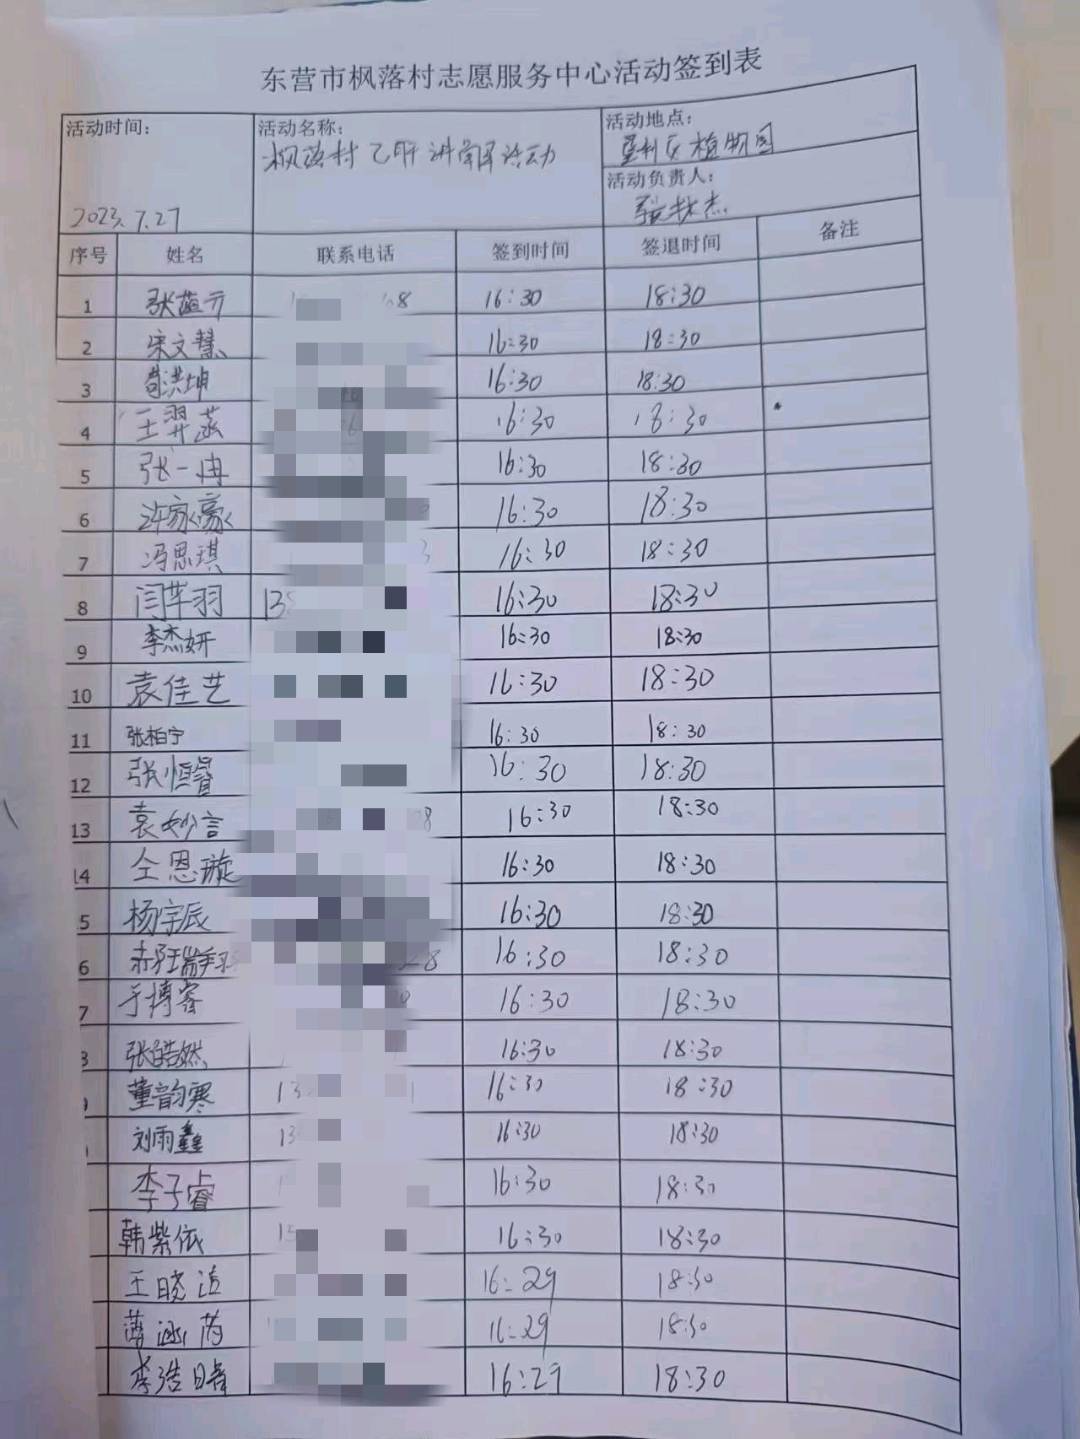 东营市枫落村志愿服务中心活动签到表
活动时间: 2023.7.27
活动名称: 枫落村乙肝讲解活动
活动地点: 垦利区植物园
活动负责人: 张林杰
序号 姓名 联系电话 签到时间 签退时间 备注
1 张蕴元 68 16:30 18:30
2 宋文慧 16:30 18:30
3 苟洪坤 16:30 18:30
4 王羿菡 16:30 18:30
5 张一冉 16:30 18:30
6 许家豪 16:30 18:30
7 冯思琪 3 16:30 18:30
8 闫芊羽 13 16:30 18:30
9 李杰妍 16:30 18:30
10 袁佳艺 16:30 18:30
11 张柏宁 16:30 18:30
12 张恒睿 16:30 18:30
13 袁妙言 8 16:30 18:30
14 仝恩璇 16:30 18:30
5 杨宇辰 16:30 18:30
6 瑞翔 28 16:30 18:30
7 于博睿 16:30 18:30
8 张皓然 16:30 18:30
9 董韵寒 13 1 16:30 18:30
刘雨鑫 13 16:30 18:30
李子睿 1 16:30 18:30
韩紫依 15 16:30 18:30
王晓洁 16:29 18:30
涵芮 16:29 18:30
李浩 16:29 18:30